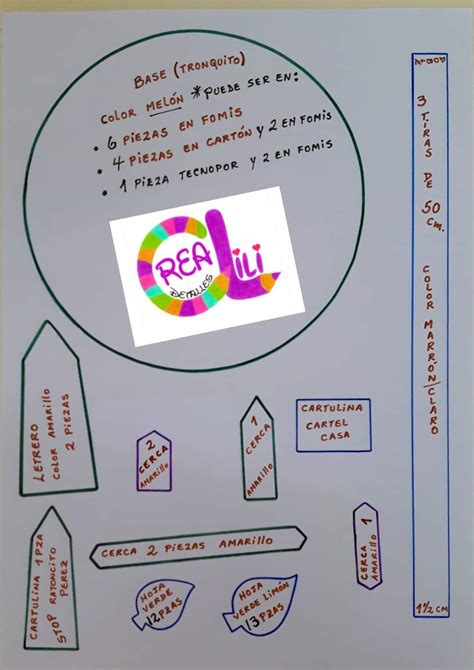 BASE (TRONQUITO)
COLOR MELÓN *PUEDE SER EN:
• 6 PIEZAS EN FOMIS
• 4 PIEZAS EN CARTÓN Y 2 EN FOMIS
• 1 PIEZA TECNOPOR Y 2 EN FOMIS
CREA
DETALLES
LiLi
3 TIRAS DE 50 Cm. COLOR MARRÓN/CLARO
1 1/2 CM
LETRERO
COLOR AMARILLO
2 PIEZAS
2
CERCA
AMARILLO
1
CERCA
AMARILLO
CARTULINA
CARTEL
CASA
CARTULINA 1 PZA
STOP RATONCITO
PEREZ
CERCA 2 PIEZAS AMARILLO
CERCA 1
AMARILLO
HOJA
VERDE
12 PZAS
HOJA
VERDE LIMÓN
13 PZAS